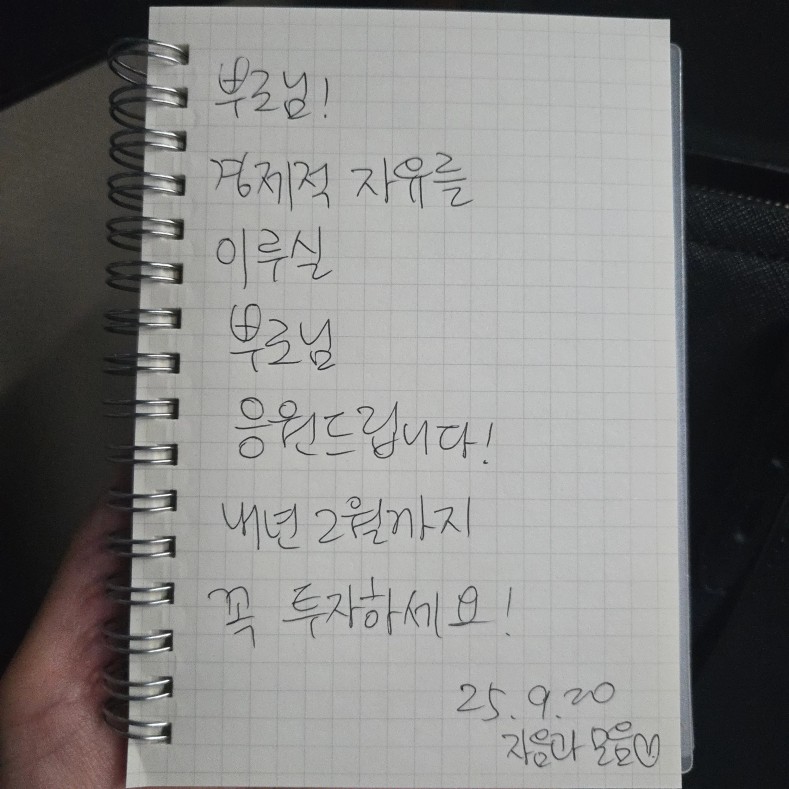 부르님!
경제적 자유를
이루실
부르님
응원드립니다!
내년 2월까지
꼭 투자하세요!
25.9.20
자음과 모음♡